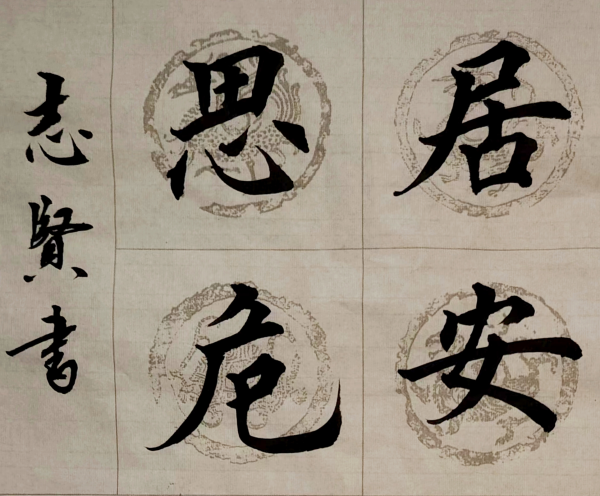 居安
思危
志賢書